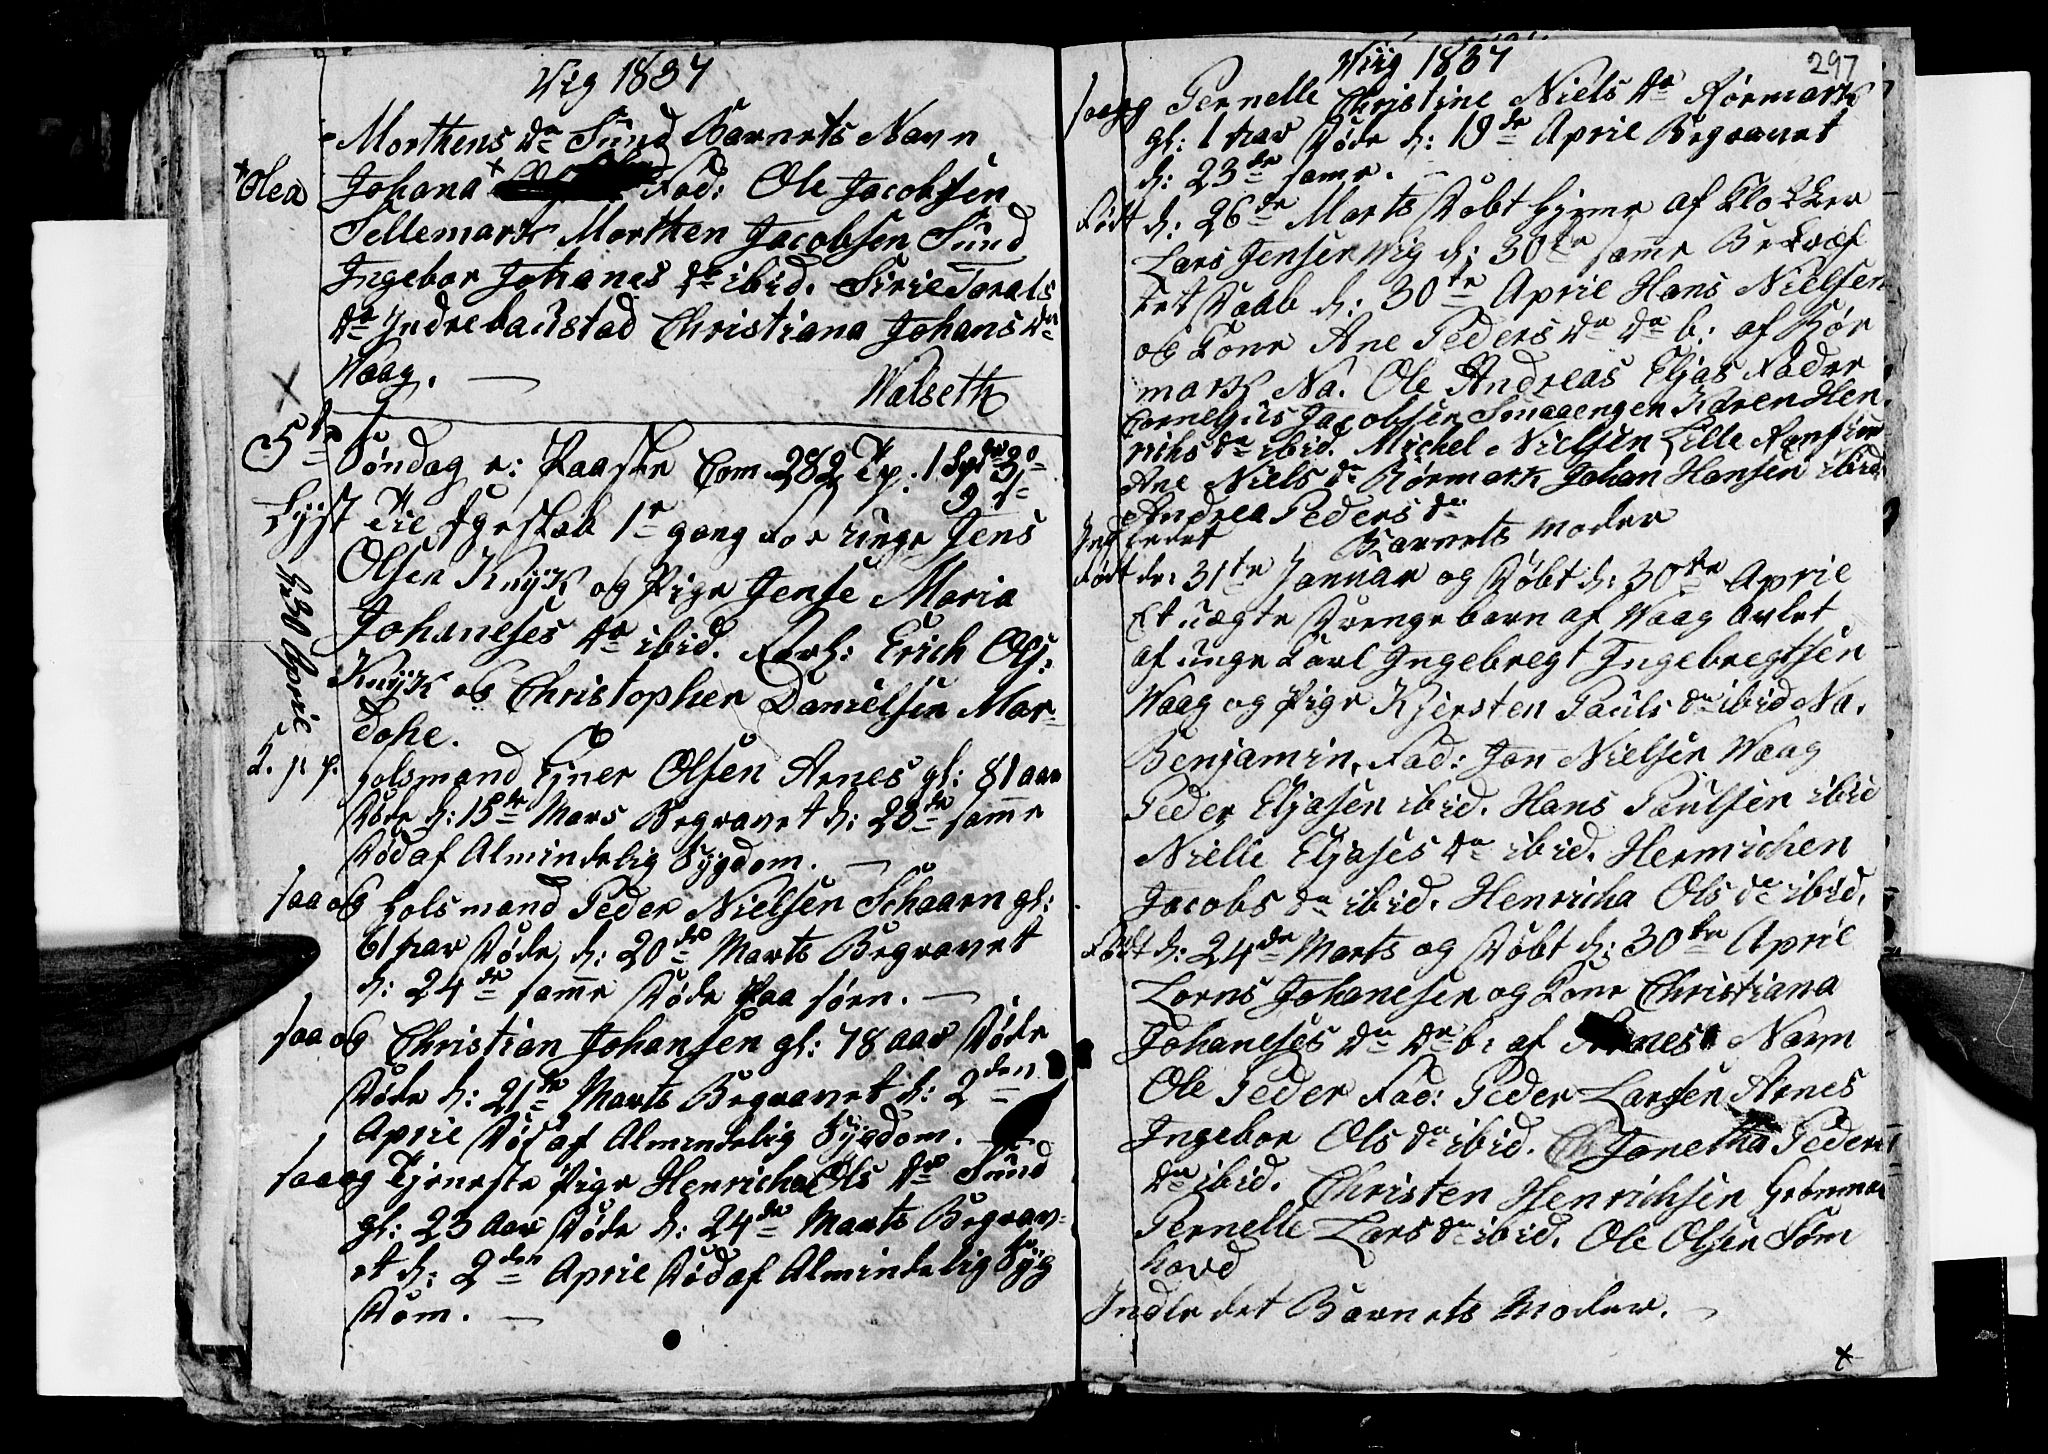 Vig 1837
Morthens da Sund Barnets Navn
*Olea
Johana * Fad: Ole Jacobsen
Tellemark Morthen Jacobsen Sund
Ingebor Johanes da ibid. Sirie Torals
da Indrebaustad Christiana Johans da
Waag.
Walseth
5te Søndag e: Paaske Com 282
Lyst Til Egteskab 1e gang for unge Jens
d: 30 Aprie
Olsen Knyk og Pige Jense Maria
Johaneses da ibid. Forl: Erich Ols:
Knyk og Christopher Danielsen Mar-
dohe.
golsmand Ejner Olsen Arnes gl: 81 aar
Døde d: 15de Mars Begravet d: 23de samme
Død af Almindelig Sygdom.
saa og golsmand Peder Nielsen Schaarn gl:
61 aar Døde d: 20de Marts Begravet
d: 24de samme Døde paa søen.
saa og Christian Johansen gl: 78 aar Døde
Døde d: 21de Marts Begravet d: 2den
Aprie Død af Almindelig Sygdom.
saa og Tjeneste Pige Henricha Ols da Sund
gl: 23 Aar Døde d: 24de Marts Begrav-
et d: 2den Aprie Død af Almindelig Syg
Dom.
Wiig 1837
297
saa og Pernelle Christine Niels da Rørmark
gl: 1 aar Døde d: 18de Aprie Begravet
d: 23de samme.
Født d: 26de Marts Døbt hjeme af Klokker
Lars Jensen Wig d: 30te samme Bekræf
tet Daab d: 30te Aprie Hans Nielsen
og Kone Ane Peders da da b: af Rør
mark Na. Ole Andreas Eljas Fader
Cornelius Jacobsen Smaaengen Karen Hen
richs da ibid. Michel Nielsen Lille
Ane Niels da Rørmark Johan Hansen ibid.
Andrea Peders da
Indledet Barnets Moder
Født d: 31te Januar og Døbt d: 30te Aprie
Et uægte Drengebarn af Waag Avlet
af unge Karl Ingebregt Ingebregtsen
Waag og Pige Kjersten Pauls da ibid Na.
Benjamin, Fad: Jon Nielsen Waag
Peder Eljasen ibid. Hans Paulsen ibid
Nielle Eljases da ibid. Hermichen
Jacobs da ibid. Henricha Ols da ibid.
Født d: 24de Marts og Døbt d: 30te Aprie
Lorns Johanesen og Kone Christiana
Johaneses da da b: af Arnes Navn
Ole Peder Fad: Peder Larsen Arnes
Ingebor Ols da ibid. Janetha Peders
da ibid. Christen Henrichsen
Pernelle Lars da ibid. Ole Olsen Søm
havd
Indledet Barnets Moder.